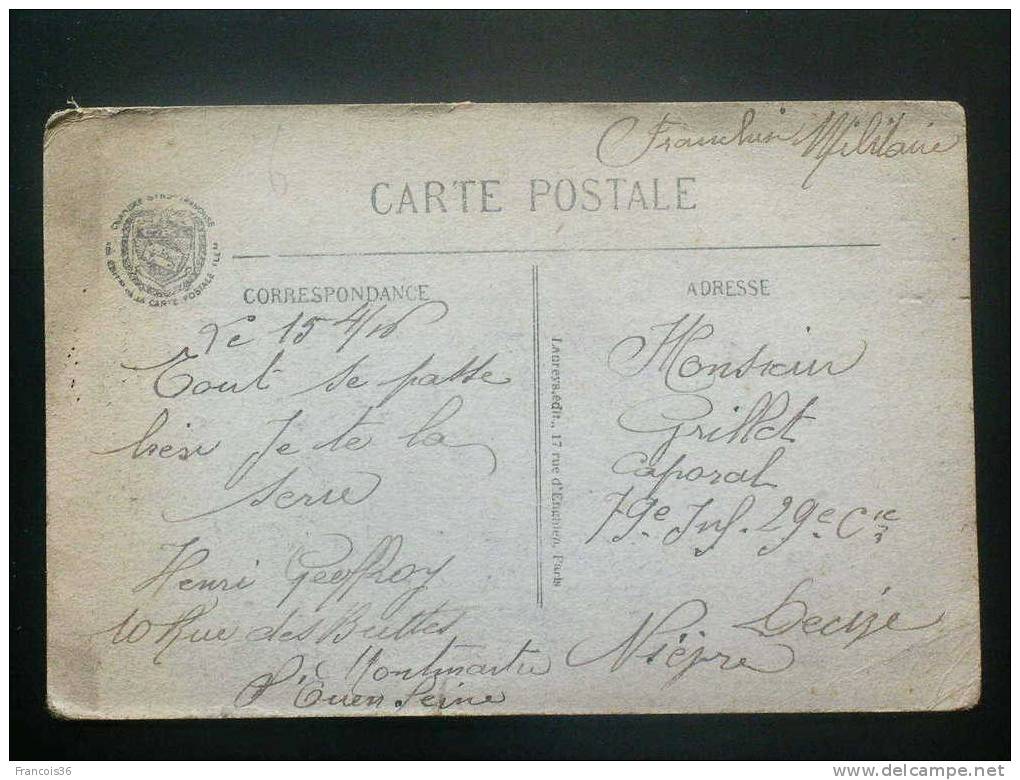 Franchise Militaire
CARTE POSTALE
CHAMBRE SYND FRANÇAISE
DE LA CARTE POSTALE ILL
CORRESPONDANCE
Le 15 4/16
Tout se passe
bien Je te la
serre
Henri Geoffroy
10 Rue des Buttes
Montmartre
St Ouen Seine
Lapreys. édit., 17 rue d'Enghien. Paris
ADRESSE
Monsieur
Grillet
Caporal
79e Inf. 29e Cie
Decize
Nièvre
Francois36
delcampe.net